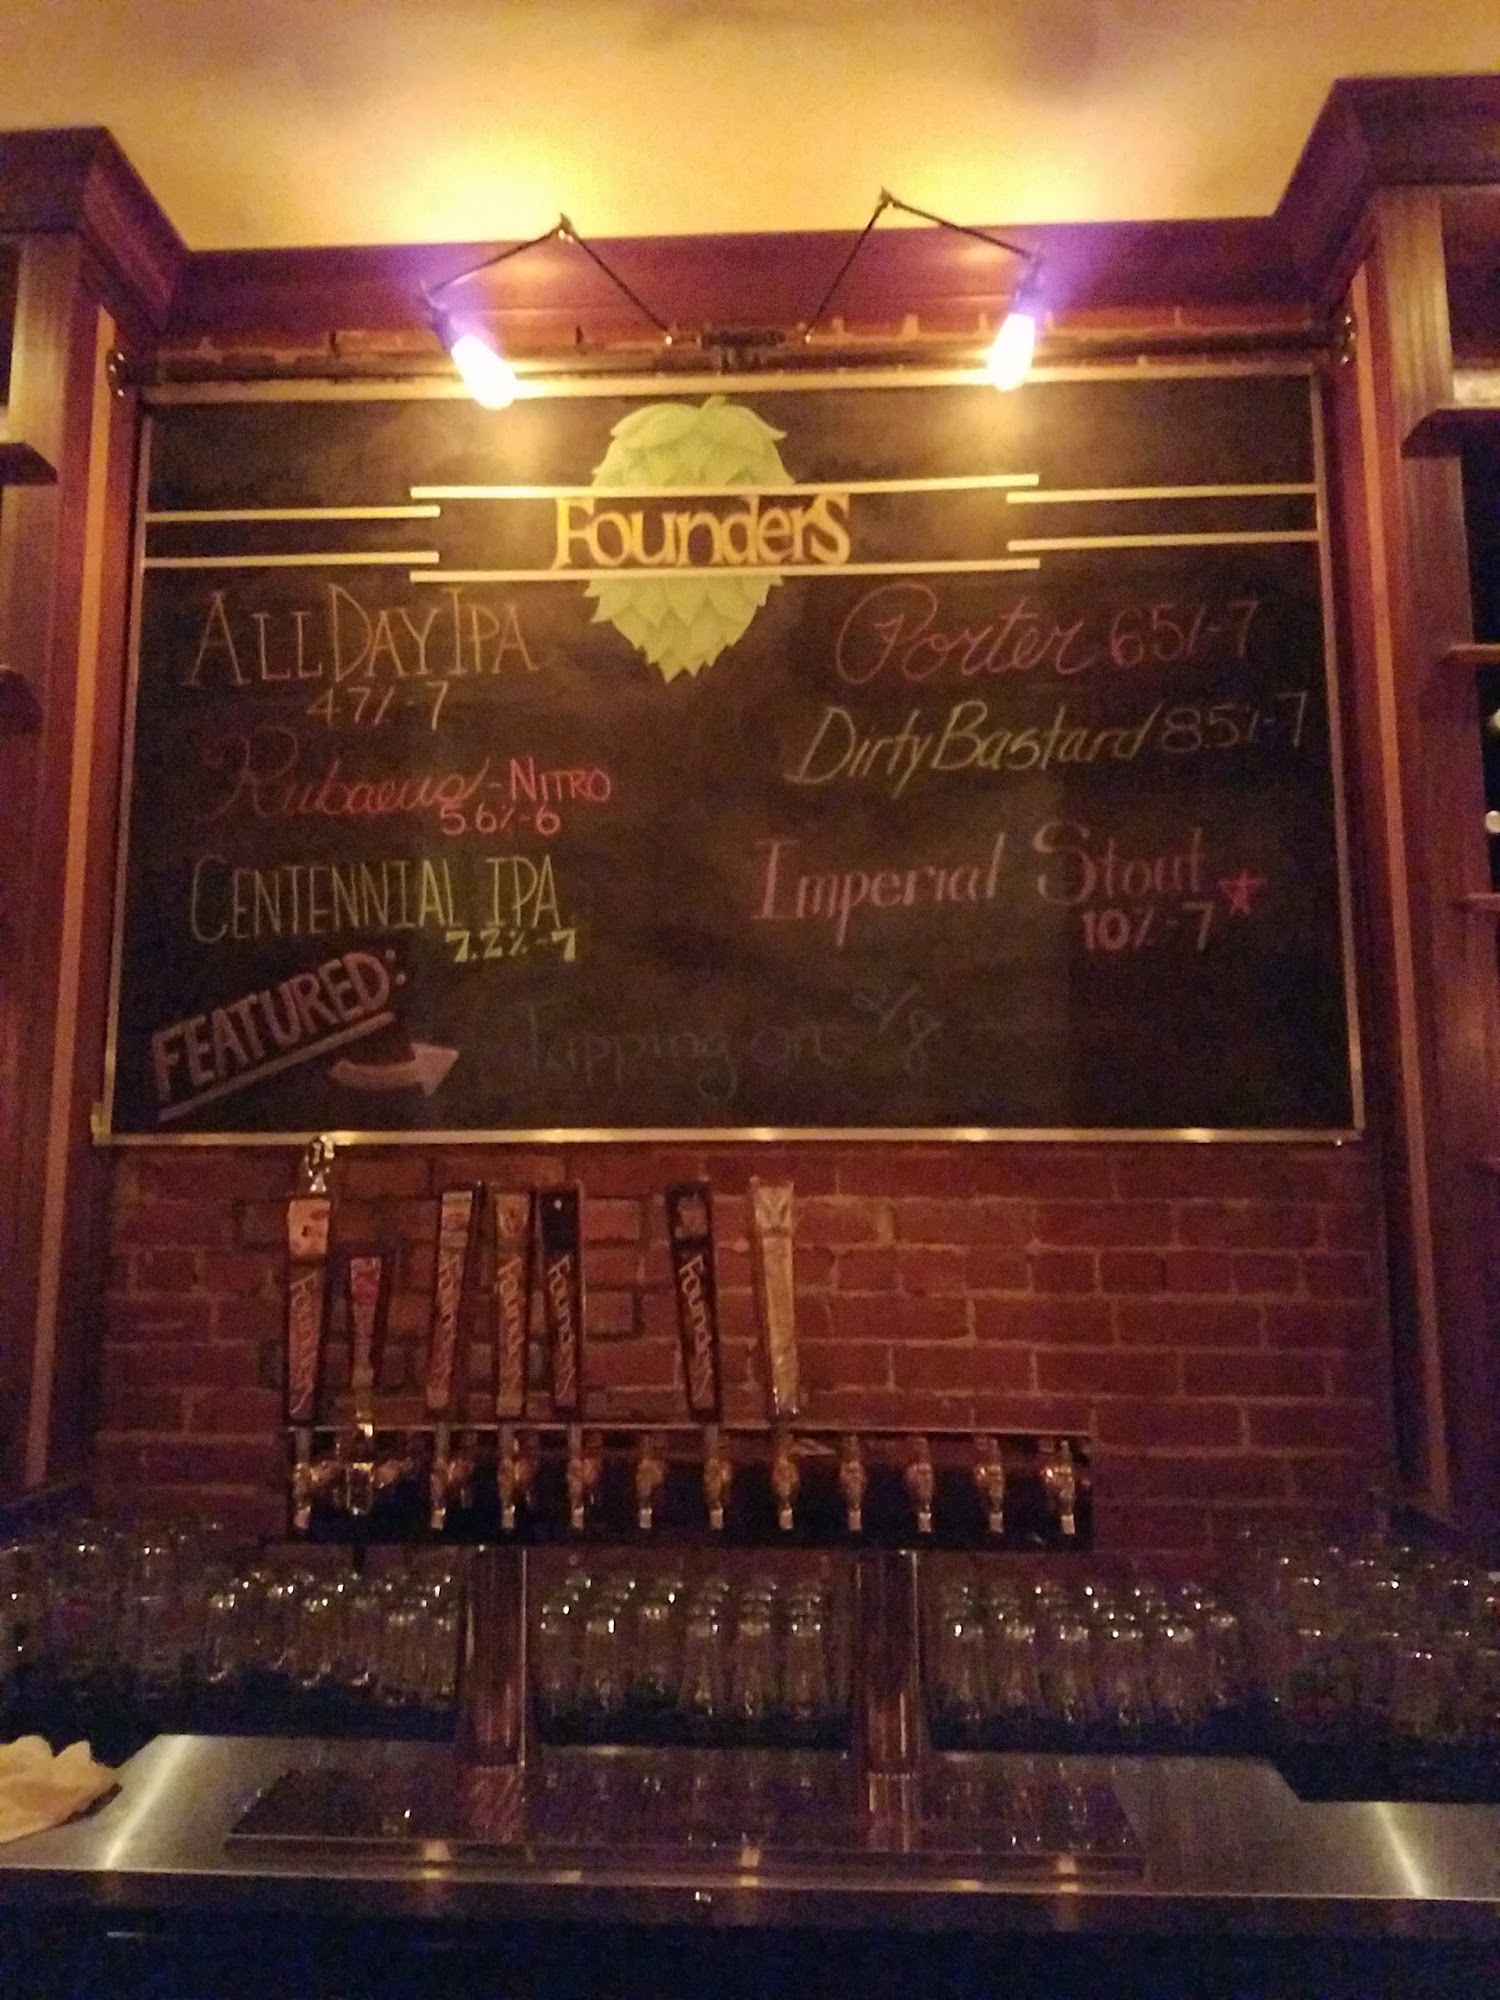 Founders
All Day IPA
4.7%-7
Rubaeus-Nitro
5.6%-6
Centennial IPA
7.2%-7
Porter 6.5%-7
Dirty Bastard 8.5%-7
Imperial Stout
10%-7
FEATURED:
Tapping on
Founders
Founders
Founders
Founders
Founders